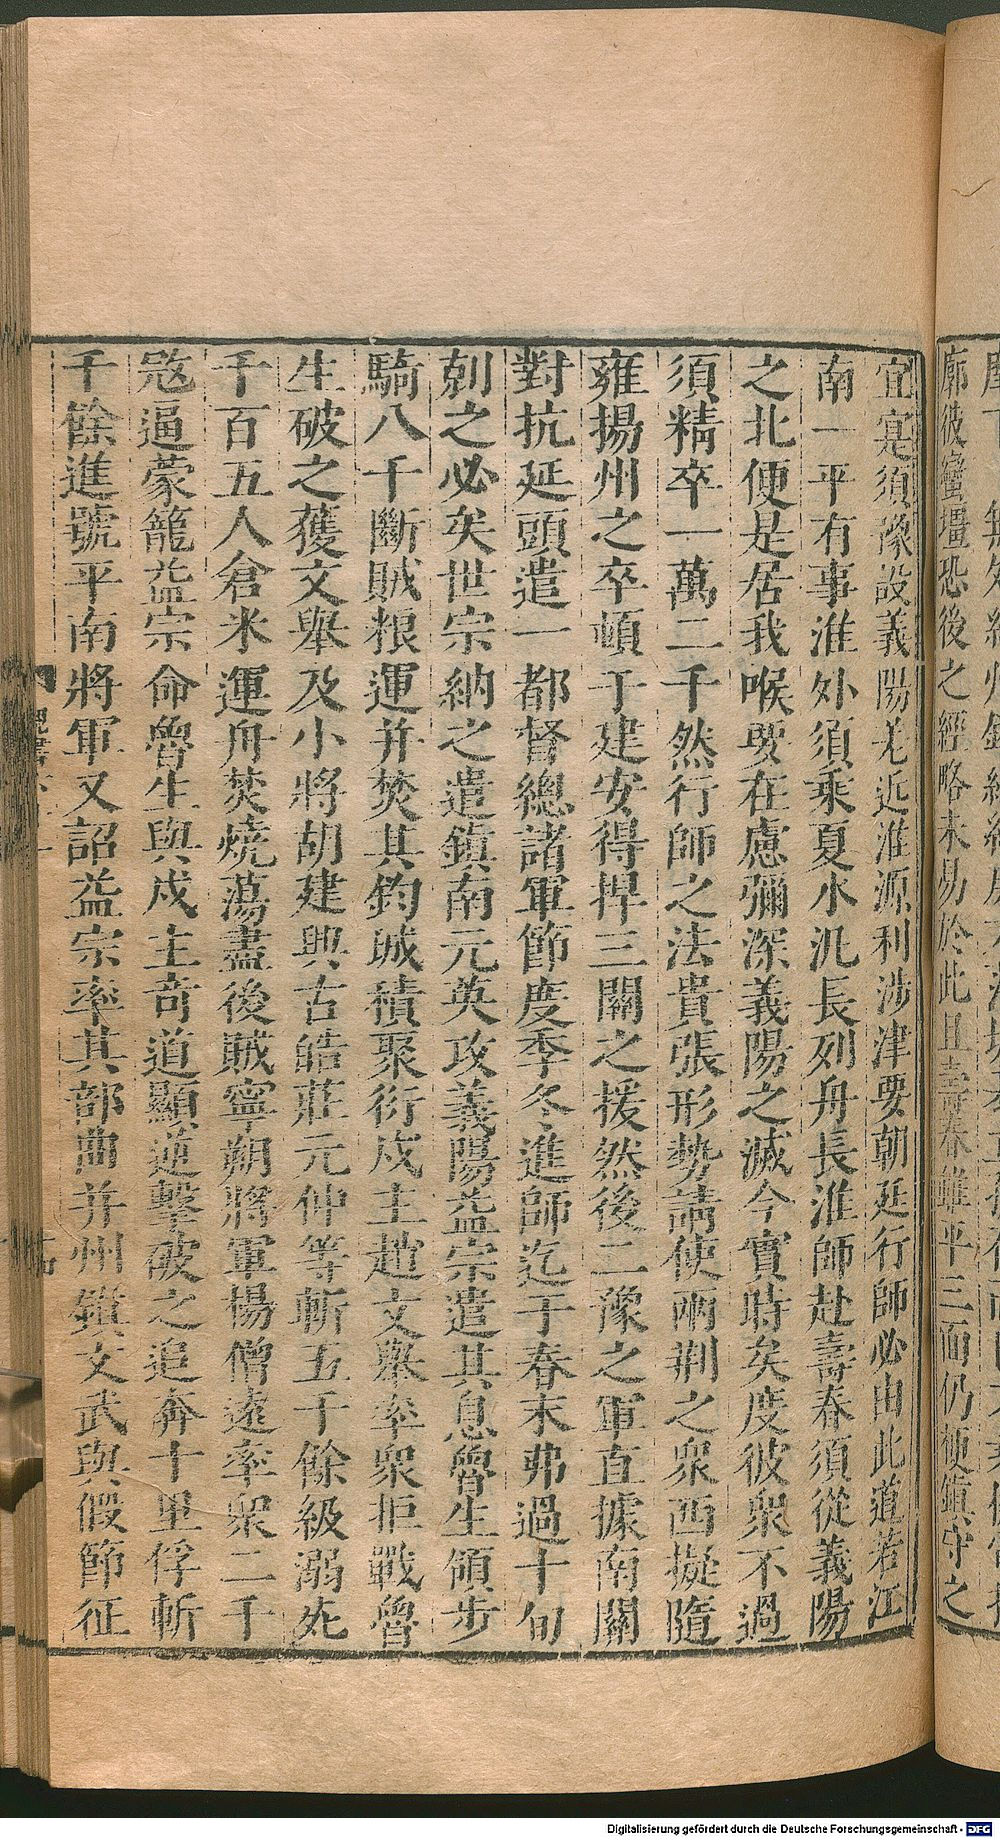 廓彼蠻壃恐後之經略未易於此且壽春雖平三面仍梗鎮守之
宜寔須豫設義陽差近淮源利涉津要朝廷行師必由此道若江
南一平有事淮外須乘夏水汎長列舟長淮師赴壽春須從義陽
之北便是居我喉要在慮彌深義陽之滅今實時矣度彼衆不過
須精卒一萬二千然行師之法貴張形勢請使兩荆之衆西擬隨
雍揚州之卒頓于建安得捍三關之援然後二豫之軍直據南關
對抗延頭遣一都督總諸軍節度季冬進師迄于春末弗過十旬
剋之必矣世宗納之遣鎮南元英攻義陽益宗遣其息魯生領步
騎八千斷賊粮運并焚其鈞城積聚衍戍主趙文舉率衆拒戰魯
生破之獲文舉及小將胡建興古皓莊元仲等斬五千餘級溺死
千百五人倉米運舟焚燒蕩盡後賊寧朔將軍楊僧遠率衆二千
寇逼蒙籠益宗命魯生與戍主奇道顯逆擊破之追奔十里俘斬
千餘進號平南將軍又詔益宗率其部曲并州鎮文武與假節征
Digitalisierung gefördert durch die Deutsche Forschungsgemeinschaft - DFG